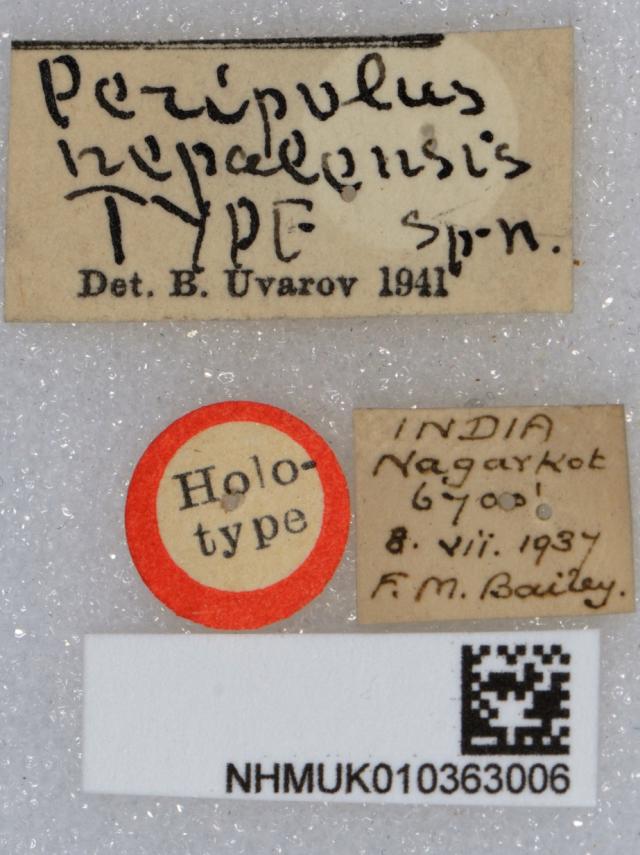 Peripolus
nepalensis
TYPE sp.n.
Det. B. Uvarov 1941
Holo-
type
INDIA
Nagarkot
6700'
8. vii. 1937
F. M. Bailey.
NHMUK010363006